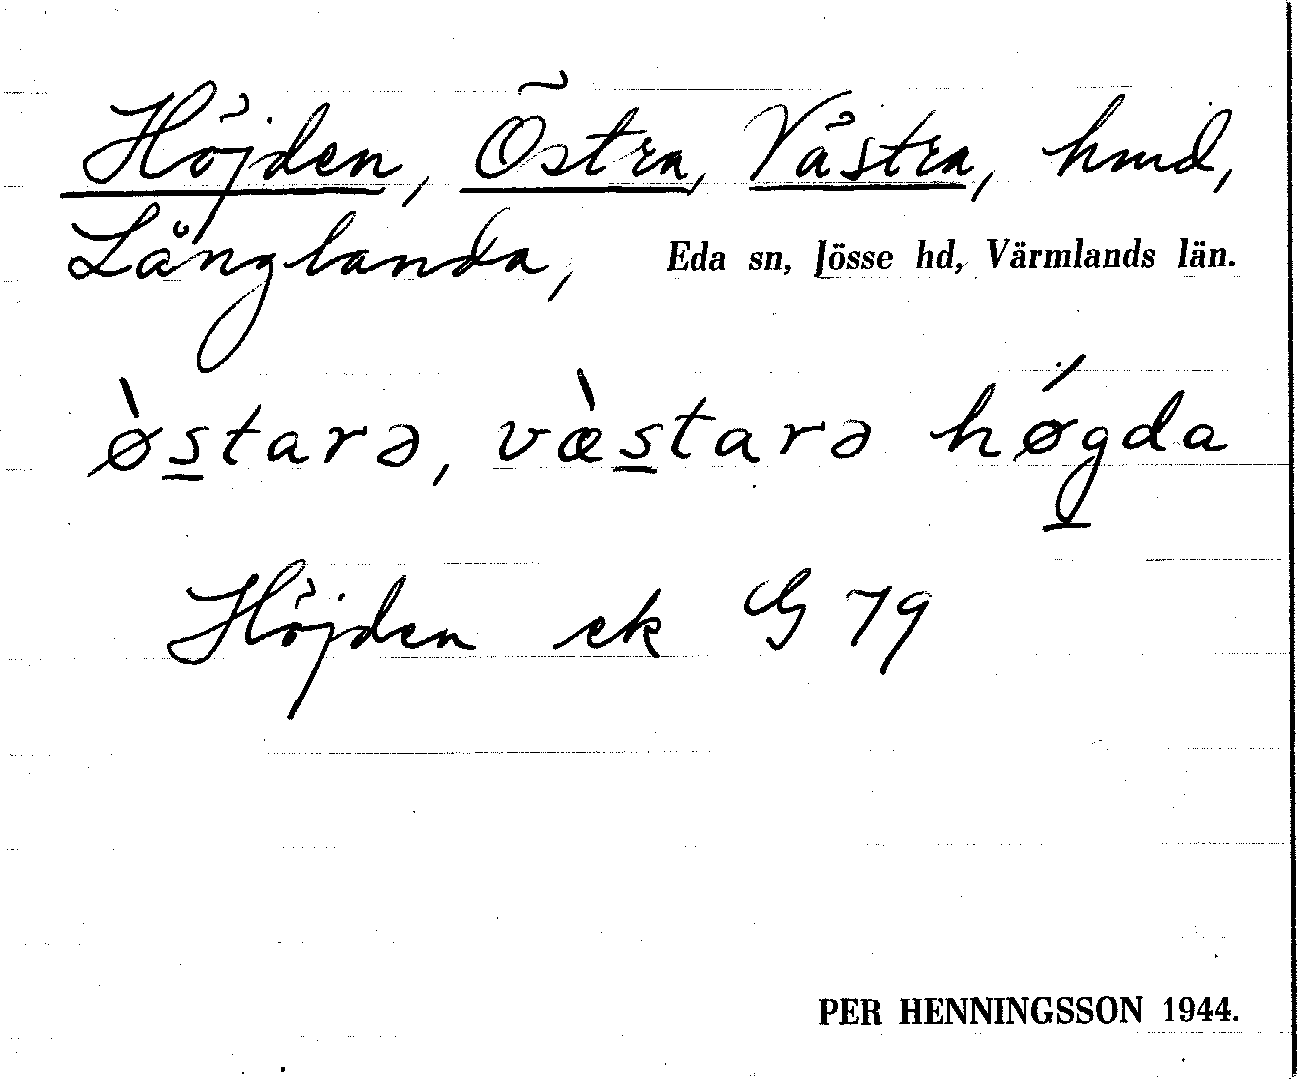 Höjden, Östra, Västra, hmd,
Långlanda, Eda sn, Jösse hd, Värmlands län.
ø̀starə, væ̀starə hǿgda
Höjden ek G 79
PER HENNINGSSON 1944.